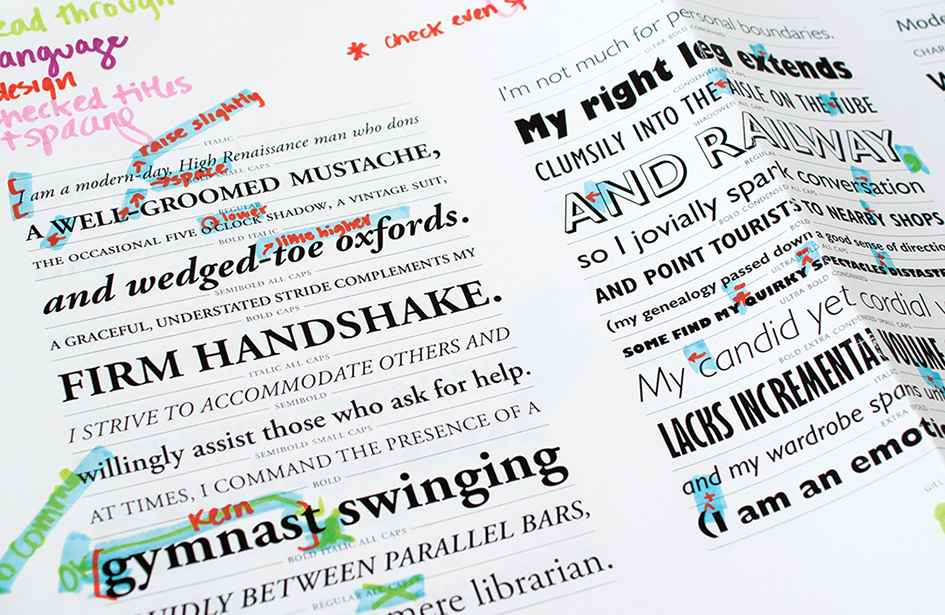 ead through
anguage
design
checked titles
+spacing
* check even sp
raise slightly
ITALIC
I am a modern-day, High Renaissance man who dons
→space
A WELL-GROOMED MUSTACHE,
REGULAR
lower
THE OCCASIONAL FIVE O'CLOCK SHADOW, A VINTAGE SUIT,
BOLD ITALIC
line higher
and wedged-toe oxfords.
SEMIBOLD ALL CAPS
A GRACEFUL, UNDERSTATED STRIDE COMPLEMENTS MY
BOLD CAPS
FIRM HANDSHAKE.
ITALIC ALL CAPS
I STRIVE TO ACCOMMODATE OTHERS AND
SEMIBOLD
willingly assist those who ask for help.
SEMIBOLD SMALL CAPS
AT TIMES, I COMMAND THE PRESENCE OF A
BOLD
Kern
gymnast swinging
BOLD ITALIC ALL CAPS
UIDLY BETWEEN PARALLEL BARS,
REGULAR ALL CAPS
mere librarian.
I'm not much for personal boundaries.
ULTRA BOLD
My right leg extends
CONDENSED ALL CAPS
CLUMSILY INTO THE AISLE ON THE TUBE
SHADOWED ALL CAPS
AND RAILWAY
REGULAR
so I jovially spark conversation
BOLD CONDENSED ALL CAPS
AND POINT TOURISTS TO NEARBY SHOPS
(my genealogy passed down a good sense of directio
ULTRA BOLD
SOME FIND MY QUIRKY SPECTACLES DISTASTE
My candid yet cordial v
BOLD EXTRA CONDENSED
LACKS INCREMENTAL VOLUME
ITALIC
and my wardrobe spans unl
EXTRA BOLD
(I am an emotio
Mode
CHAR
GIL